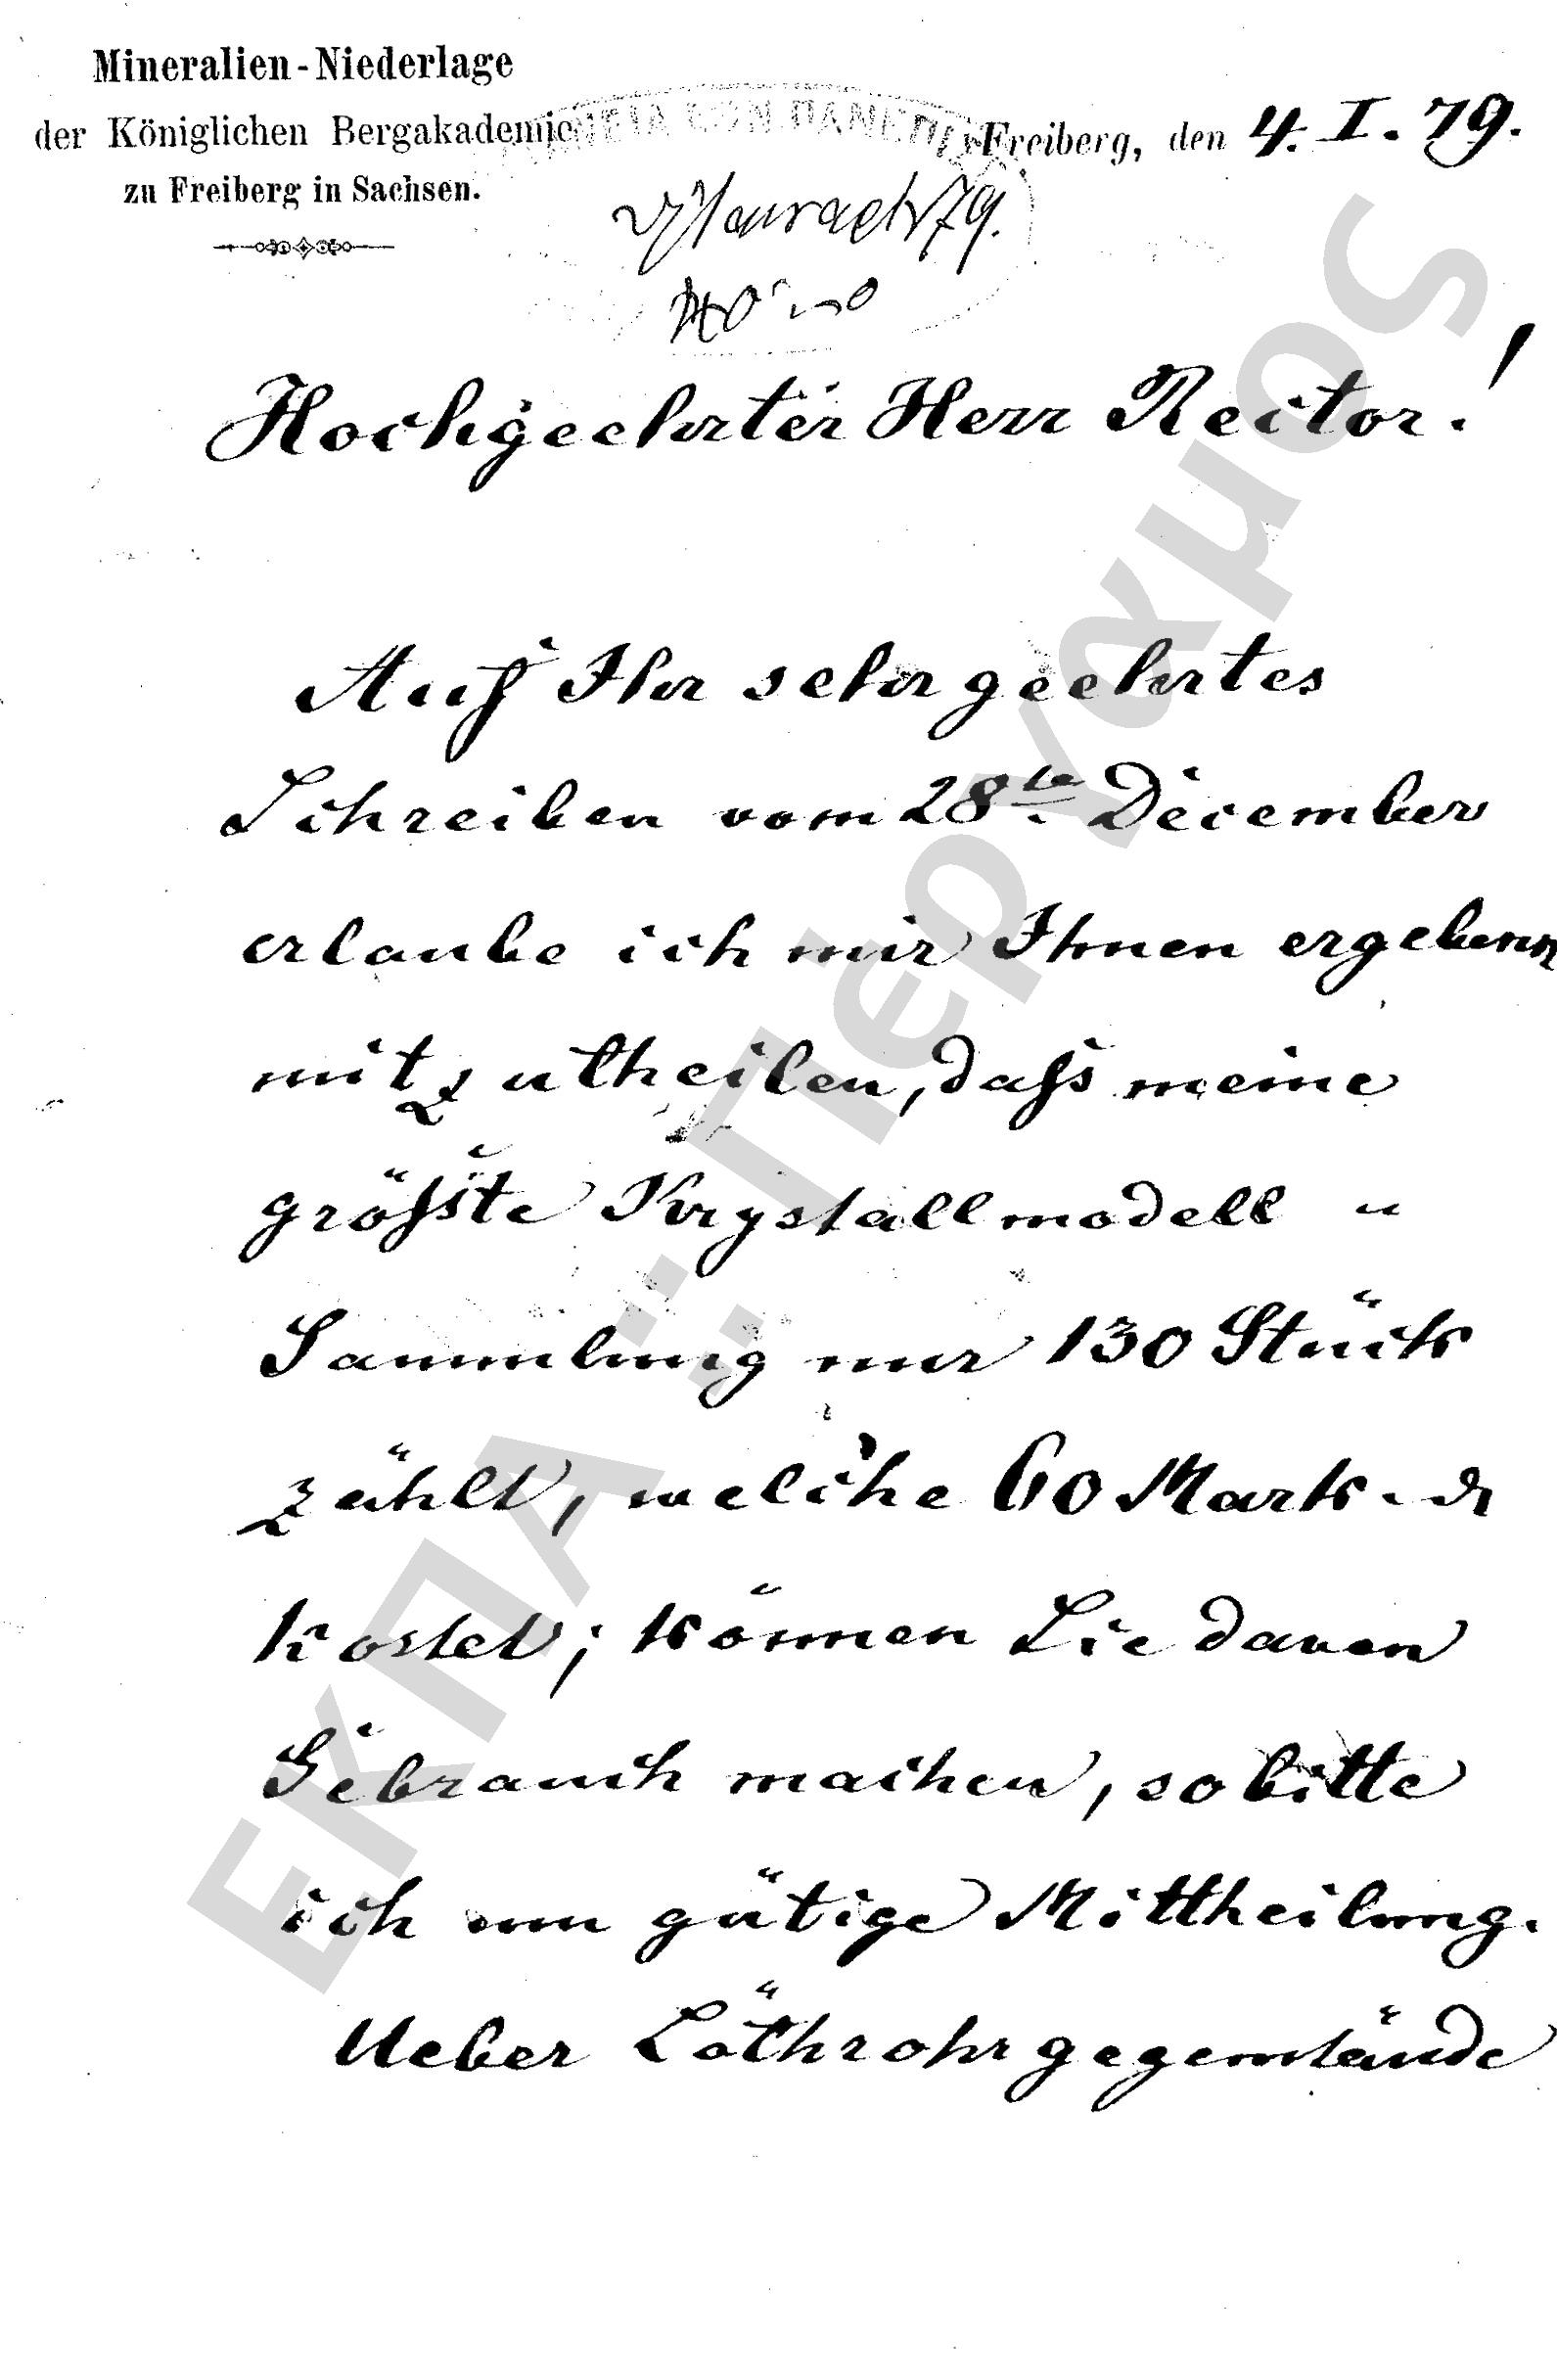 Mineralien-Niederlage
der Königlichen Bergakademie
zu Freiberg in Sachsen.
Freiberg, den 4. I. 79.
Hochgeehrter Herr Rector!
Auf Ihr sehr geehrtes
Schreiben vom 28te December
erlaube ich mir Ihnen ergebenst
mitzutheilen, daß meine
größte Krystallmodell
Sammlung nur 130 Stück
zählt, welche 60 Mark
kostet; können Sie davon
Gebrauch machen, so bitte
ich um gütige Mittheilung.
Ueber Löthrohrgegenstände
ΕΚΠΑ :: Πέργαμος